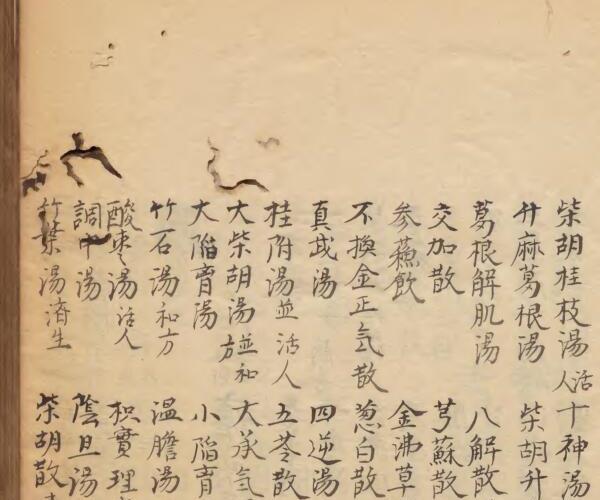 柴胡桂枝湯活人 十神湯
升麻葛根湯 柴胡升
葛根解肌湯 八解散
交加散 芎蘇散
参蘓飲 金沸草
不換金正気散 葱白散
真武湯 四逆湯
桂附湯並活人 五苓散
大柴胡湯並和方 大承気
大陥胷湯 小陥胷
竹石湯和方 温膽湯
酸棗湯活人 枳實理
調中湯 陰旦湯
竹葉湯済生 柴胡散